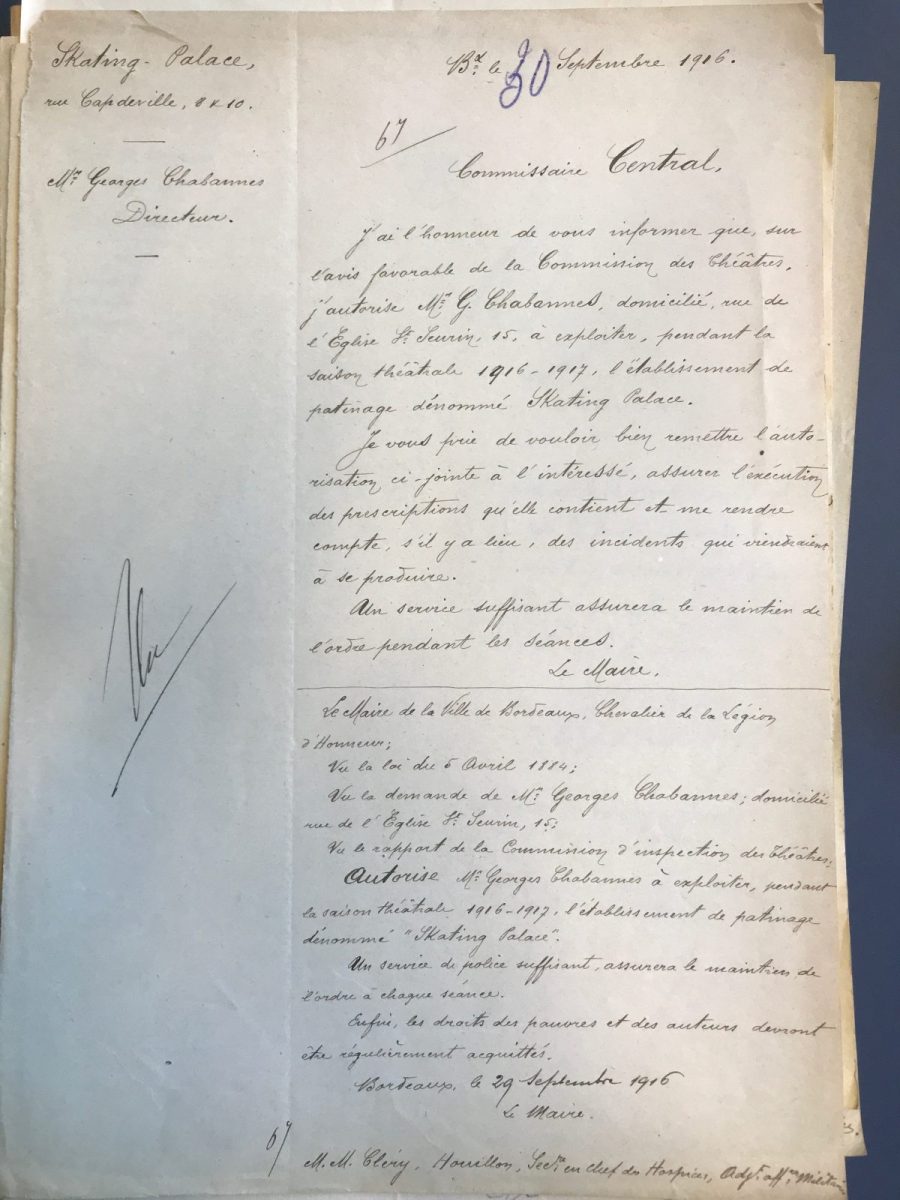 Skating-Palace,
rue Capdeville, 8 & 10.
Mr. Georges Chabannes
Directeur.
Bx. le 30 Septembre 1916.
67
Commissaire Central,
J'ai l'honneur de vous informer que, sur
l'avis favorable de la Commission des Théâtres,
j'autorise Mr. G. Chabannes, domicilié, rue de
l'Eglise St. Seurin, 15, à exploiter, pendant la
saison théâtrale 1916-1917, l'établissement de
patinage dénommé Skating Palace.
Je vous prie de vouloir bien remettre l'auto-
risation ci-jointe à l'intéressé, assurer l'exécution
des prescriptions qu'elle contient et me rendre
compte, s'il y a lieu, des incidents qui viendraient
à se produire.
Un service suffisant assurera le maintien de
l'ordre pendant les séances.
Le Maire,
Le Maire de la Ville de Bordeaux, Chevalier de la Légion
d'Honneur;
Vu la loi du 5 Avril 1884;
Vu la demande de Mr. Georges Chabannes; domicilié
rue de l'Eglise St. Seurin, 15;
Vu le rapport de la Commission d'inspection des Théâtres;
Autorise Mr. Georges Chabannes à exploiter, pendant
la saison théâtrale 1916-1917, l'établissement de patinage
dénommé "Skating Palace".
Un service de police suffisant, assurera le maintien de
l'ordre à chaque séance.
Enfin, les droits des pauvres et des auteurs devront
être régulièrement acquittés.
Bordeaux, le 29 Septembre 1916
Le Maire.
67
M.M. Cléry, Houillon, Secre. en chef des Hospices, Adjt. affres Militaires